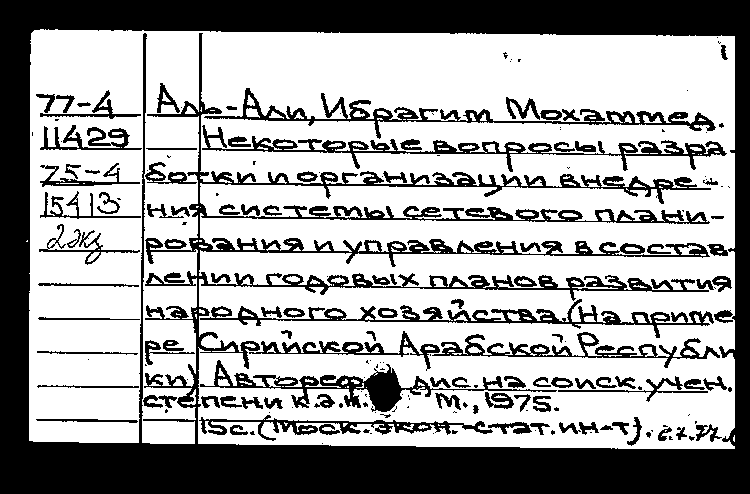 77-4 Аль-Али, Ибрагим Мохаммед.
11429 Некоторые вопросы разра-
75-4 ботки и организации внедре-
15413 ния системы сетевого плани-
2 экз рования и управления в состав-
лении годовых планов развития
народного хозяйства. (На приме
ре Сирийской Арабской Республи
ки) Автореф. дис. на соиск. учен.
степени к.э.н. М., 1975.
15с. (Моск. экон.-стат. ин-т).